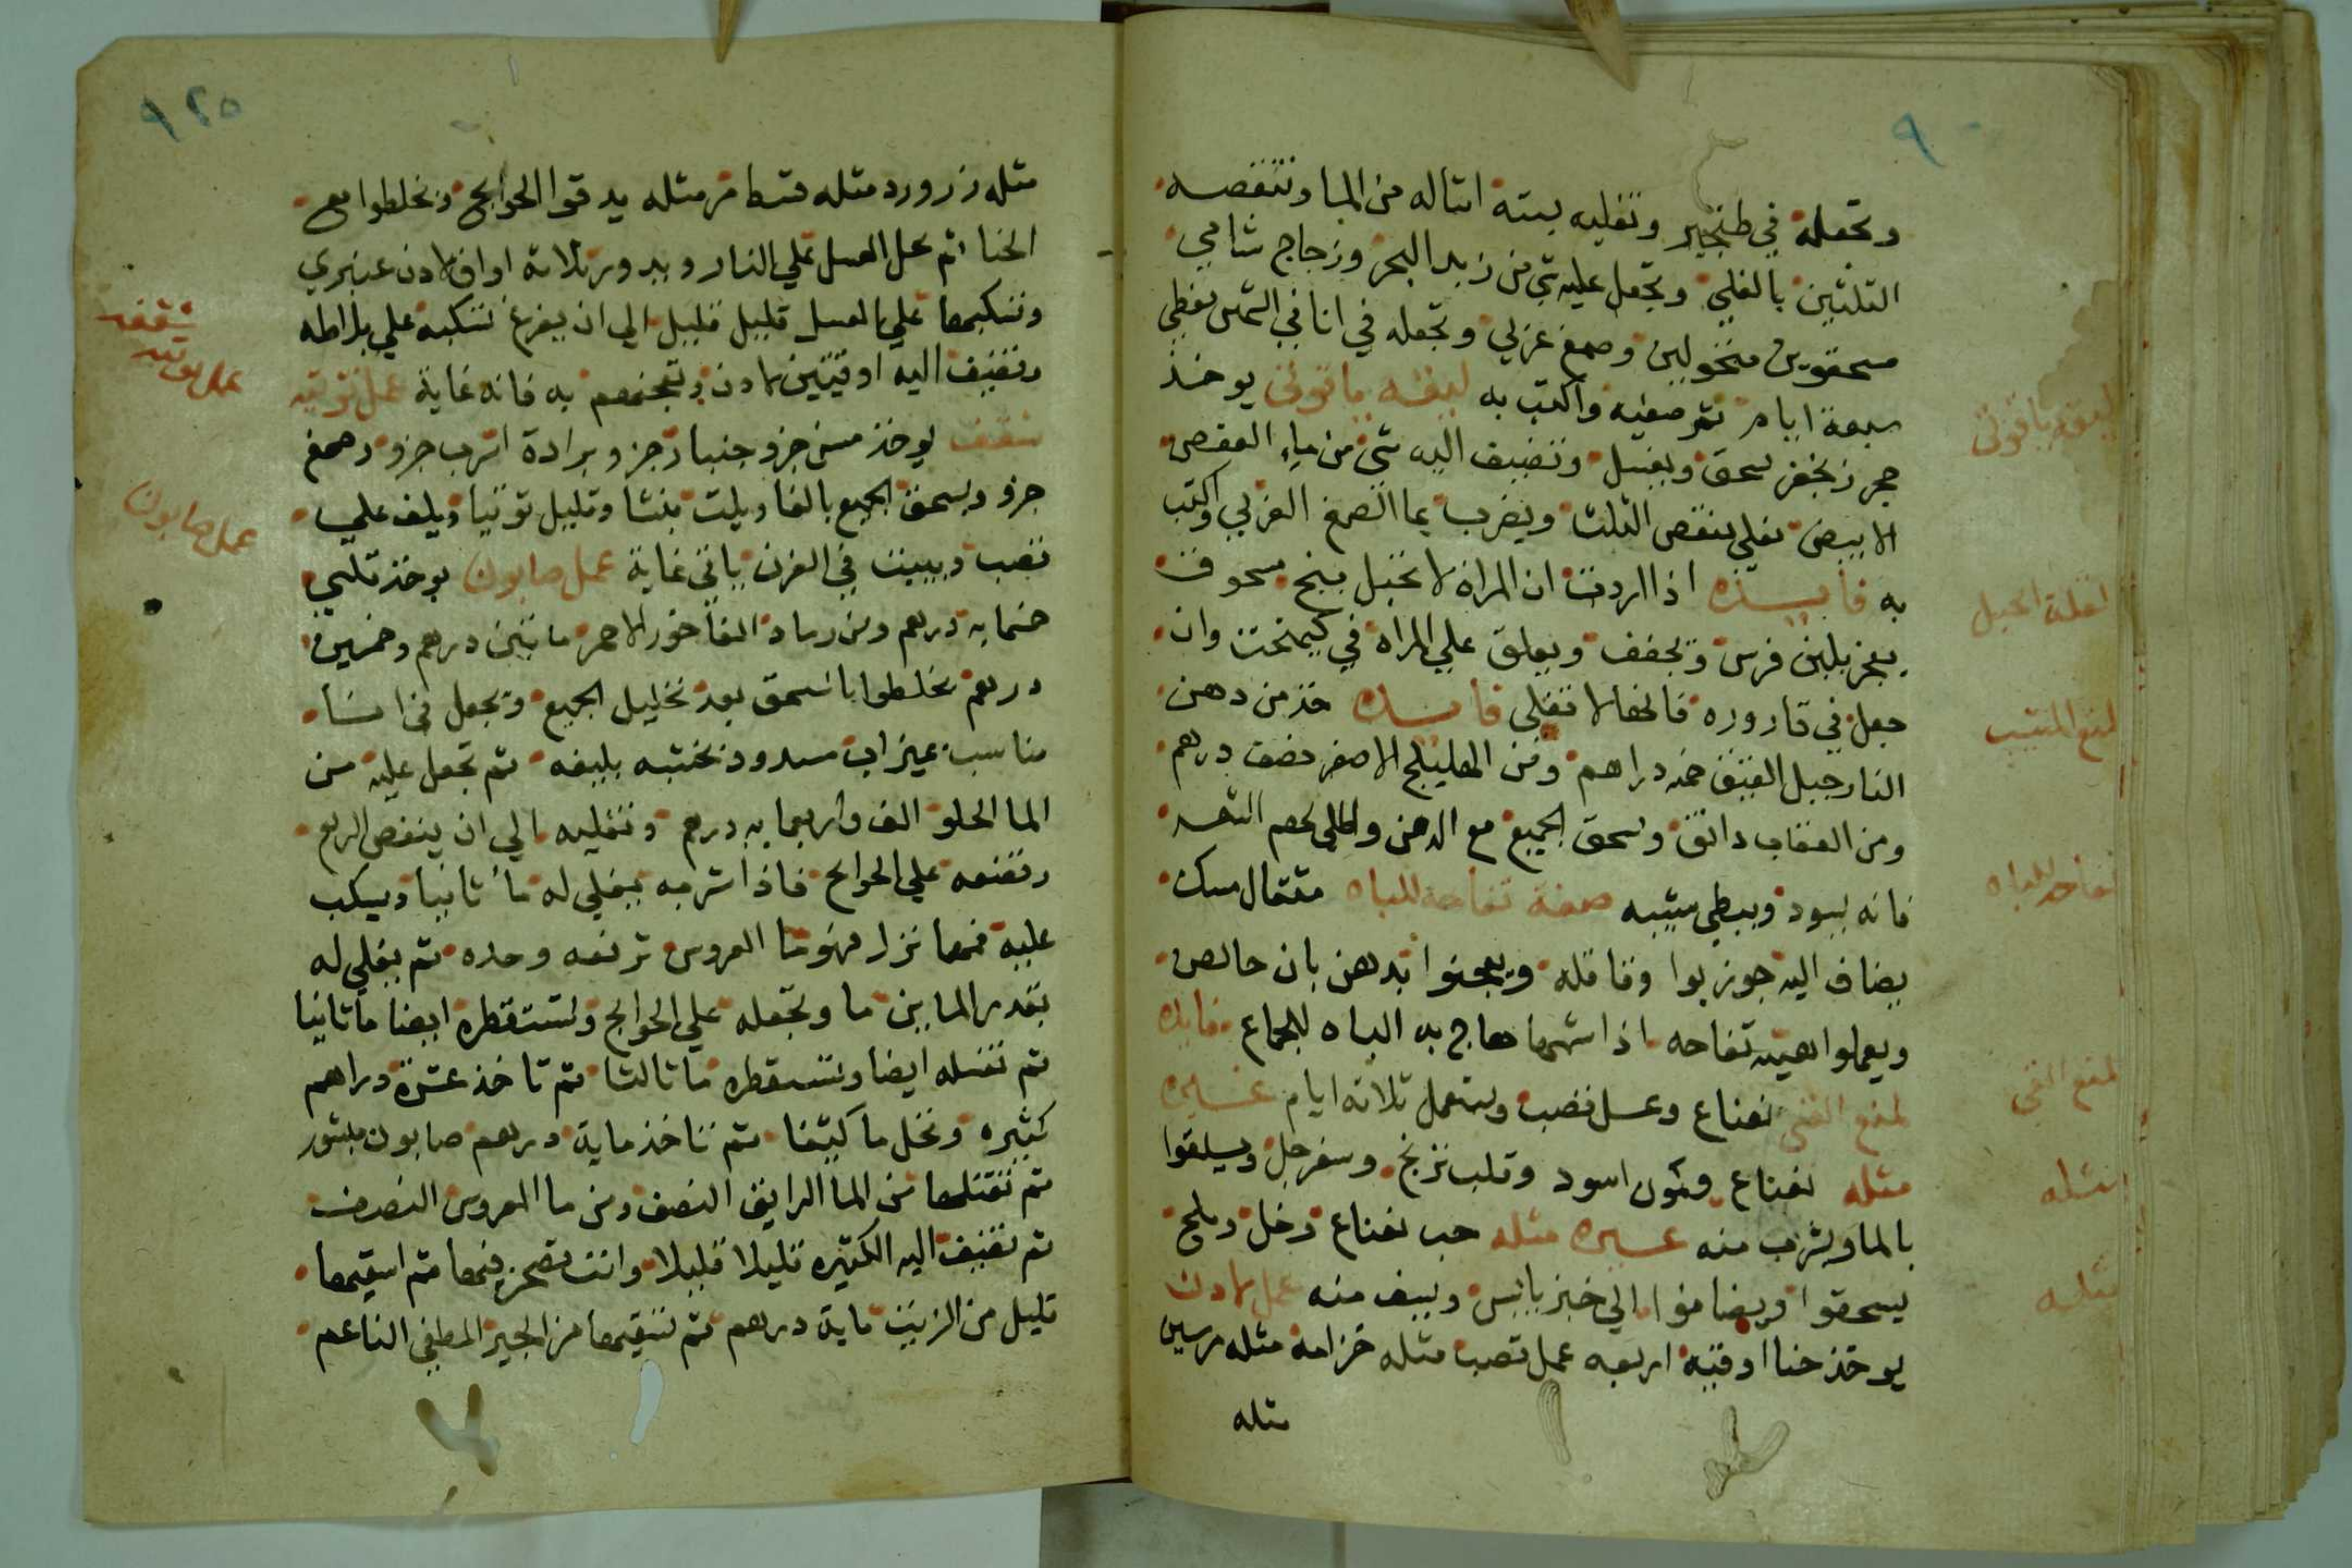 ٩٠
وتجعله في طنجير وتغليه بستة امثاله من الما وتنقصه
الثلثين بالغلي وتجعل عليه شي من زبد البحر وزجاج شامي
مسحوقين منخولين وصمغ عربي وتجعله في انا في الشمس تغطي
سبعة ايام ثم صفيه واكتب به ليقه ياقوتي يوخذ
حجر زنجفر يسحق ويغسل وتضيف اليه شي من ماء العفص
الابيض تغلي ينقص الثلث ويضرب بما الصمغ العربي واكتب
به فايده اذا اردت ان المراة لا تحبل بنج مسحوق
يعجن بلبن فرس وتجفف ويعلق علي المراه في كيمخت وان
جعل في قاروره فانها لا تغلي فايده خذ من دهن
النارجيل العتيق خمسه دراهم ومن الهليلج الاصفر نصف درهم
ومن العقاب دانق وسحق الجميع مع الدهن واطلي بهم الشعر
فانه يسود ويبطي شيبه صفة تفاحه للباه مثقال مسك
يضاف اليه جوز بوا وقاقله ويعجنوا بدهن بان خالص
ويعملوا هيئه تفاحه اذا شمها هاج به الباه للجماع فايده
لمنع القي نعناع وعسل قصب ويستعمل ثلاثة ايام غيره
مثله نعناع وكمون اسود وقلب نرنج وسفرجل ويسلقوا
بالما ويشرب منه غيره مثله حب نعناع وخل وملح
يسحقوا ويضافوا الي خبز يابس ويسف منه عمل لادن
يوخذ حنا اوقيه اربعه عمل قصب مثله خزامه مثله مرسين
مثله
ليقه ياقوتي
لقلة الحبل
لمنع الشيب
تفاحه للباه
لمنع القي
مثله
مثله
٩٢٥
مثله زرورد مثله قسط مر مثله يدقوا الحوايج وتخلطوا مع
الحنا ثم حل العسل علي النار وبدور ثلاثة اواق لادن عنبري
وتسكبها علي العسل قليل قليل الي ان يفرغ تسكبه علي بلاطه
وتضيف اليه اوقيتين لادن وتعجنهم به فانه غاية عمل توتيه
شقف يوخذ مسن جزو جنبار جزو برادة اترب جزو وصمغ
جزو ويسحق الجميع بالما ويلت بنشا وقليل توتيا ويلف علي
قصب ويبيت في الفرن ياتي غاية عمل صابون يوخذ قلي
خمسمايه درهم ومن رماد الفاخور الاحمر مايتين درهم وخمسين
درهم تخلطوا بالسحق بعد تخليل الجميع وتجعل في انسا
مناسب بميزاب مسدود تختبه بليفه ثم تجعل عليه من
الما الحلو الف واربعمايه درهم وتغليه الي ان ينقص الربع
وتضعه علي الحوايج فاذا شربه يغلي له ما ثانيا ويسكب
عليه فمها نزل فهو ما العروس ترفعه وحده ثم يغلي له
بقدر المابين ما وتجعله علي الحوايج وتستقطره ايضا ما ثانيا
ثم تغسله ايضا وتستقطره ما ثالثا ثم تاخذ عشرة دراهم
كثيره وتحل ما كيثفا ثم تاخذ ماية درهم صابون مبشور
ثم تقتلها من الما الرايق النصف ومن ما العروس النصف
ثم تضيف اليه الكثيره قليلا قليلا وانت تصحن فيها ثم اسقيها
قليل من الزيت ماية درهم ثم تسقيها من الجير المطفي الناعم
شقف
عمل توتيه
عمل صابون